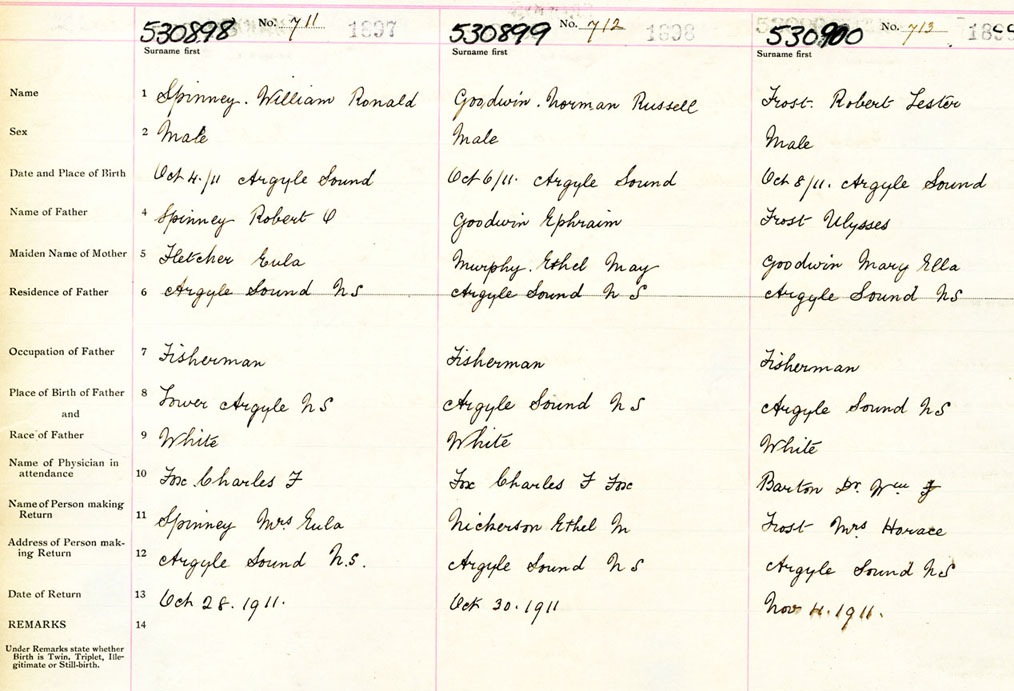 530898 No. 711 1897
Surname first
530899 No. 712 1898
Surname first
530900 No. 713 1899
Surname first
Name 1 Spinney. William Ronald Goodwin. Norman Russell Frost. Robert Lester
Sex 2 Male Male Male
Date and Place of Birth Oct 4/11 Argyle Sound Oct 6/11. Argyle Sound Oct 8/11. Argyle Sound
Name of Father 4 Spinney Robert O Goodwin Ephraim Frost Ulysses
Maiden Name of Mother 5 Fletcher Eula Murphy. Ethel May Goodwin Mary Ella
Residence of Father 6 Argyle Sound NS Argyle Sound N S Argyle Sound NS
Occupation of Father 7 Fisherman Fisherman Fisherman
Place of Birth of Father 8 Lower Argyle NS Argyle Sound N S Argyle Sound NS
and
Race of Father 9 White White White
Name of Physician in
attendance 10 Fox. Charles F Fox Charles F Fox Barton Dr. Wm F
Name of Person making
Return 11 Spinney Mrs Eula Nickerson Ethel M Frost Mrs Horace
Address of Person mak-
ing Return 12 Argyle Sound N.S. Argyle Sound N S Argyle Sound NS
Date of Return 13 Oct 28. 1911. Oct 30. 1911 Nov 4. 1911.
REMARKS 14
Under Remarks state whether
Birth is Twin, Triplet, Ille-
gitimate or Still-birth.